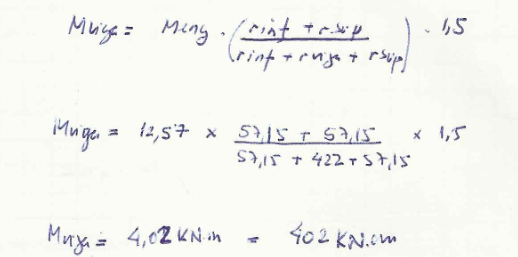 Mviga = Meng · (rinf + rsup / rinf + rviga + rsup) · 1,5
Mviga = 12,57 x 57,15 + 57,15 / 57,15 + 422 + 57,15 x 1,5
Mviga = 4,02 KN.m = 402 KN.cm